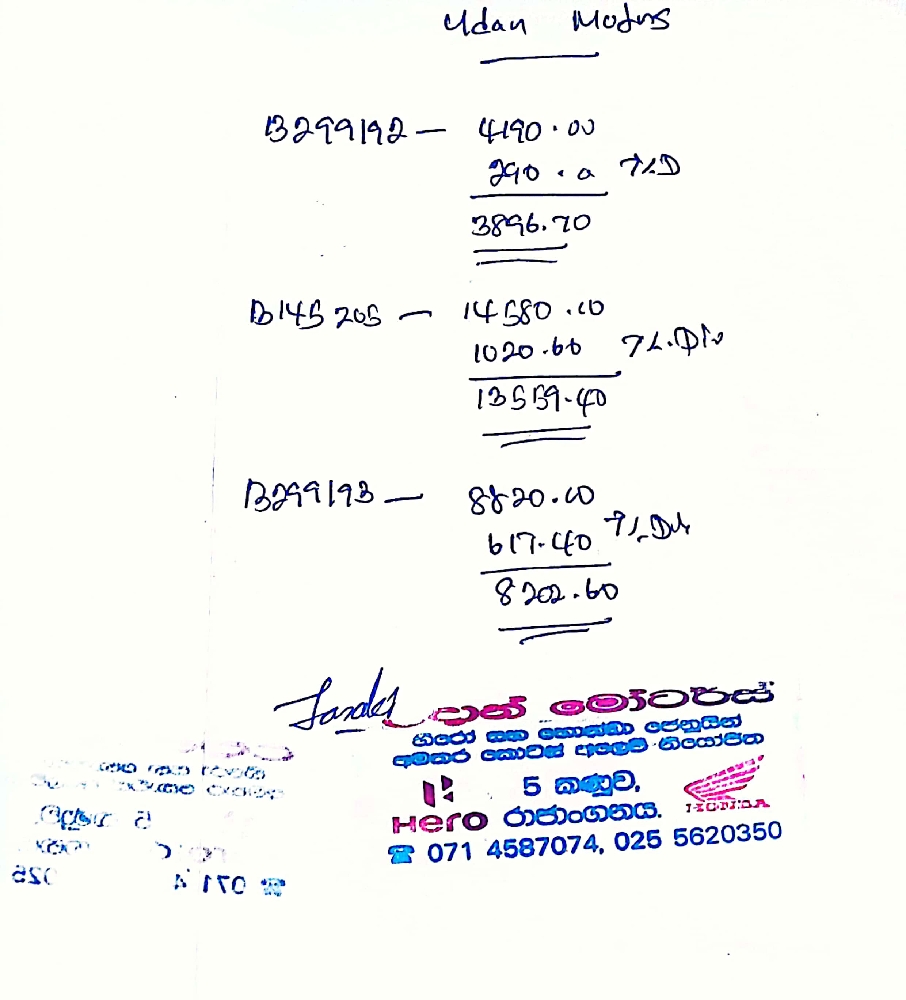 Udan Motors
B299192 — 4190.00
290.0 7%D
3896.70
B145205 — 14580.00
1020.60 7%.D/s
13559.40
B299193 — 8820.00
617.40 7%Ds
8202.60
දාන් මෝටර්ස්
හීරෝ සහ හොන්ඩා ජෙනුයින්
අමතර කොටස් අලෙවි නියෝජිත
5 කණුව,
Hero රාජාංගනය. HONDA
☎ 071 4587074, 025 5620350